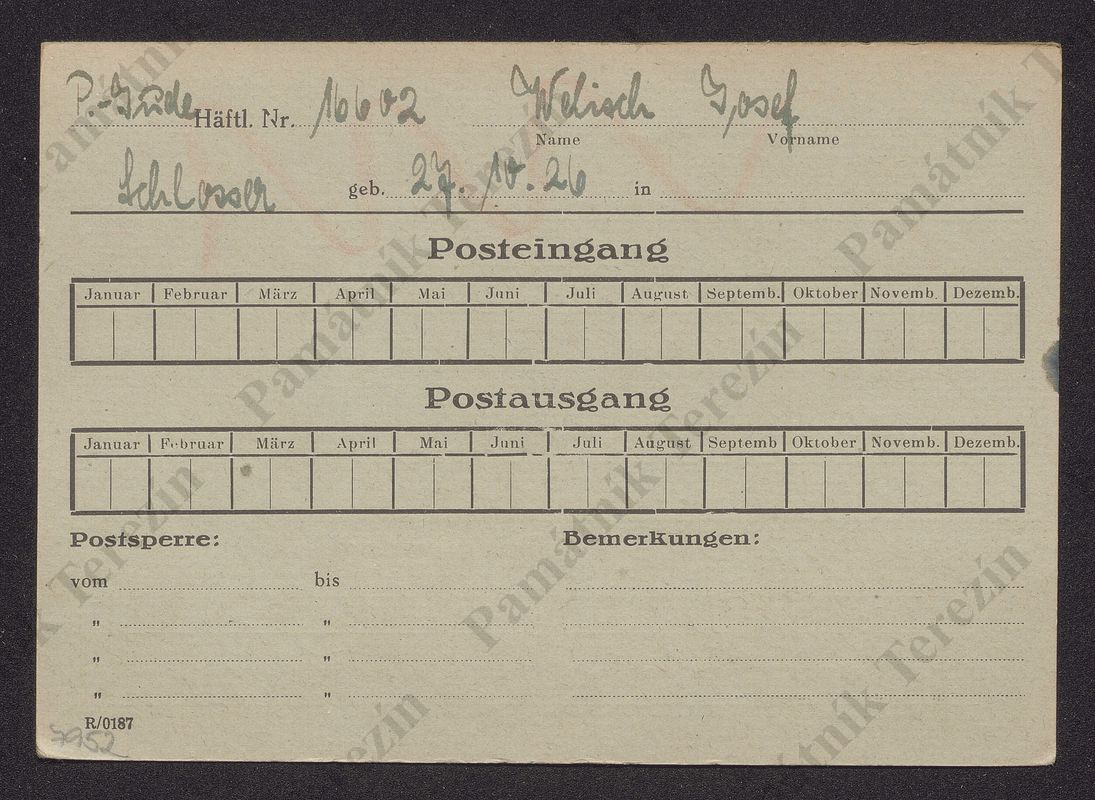 P.-Jude Häftl. Nr. 16602 Welisch Josef
Name Vorname
Schlosser geb. 27. 10. 26 in
Posteingang
Januar Februar März April Mai Juni Juli August Septemb. Oktober Novemb. Dezemb.
Postausgang
Januar Februar März April Mai Juni Juli August Septemb Oktober Novemb. Dezemb.
Postsperre: Bemerkungen:
vom bis
" "
" "
" "
R/0187
7952
Památník Terezín